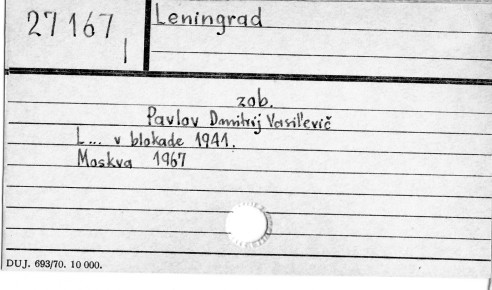 27 167
I
Leningrad
zob.
Pavlov Dmitrij Vasil'evič
L... v blokade 1941.
Moskva 1967
DUJ. 693/70. 10 000.